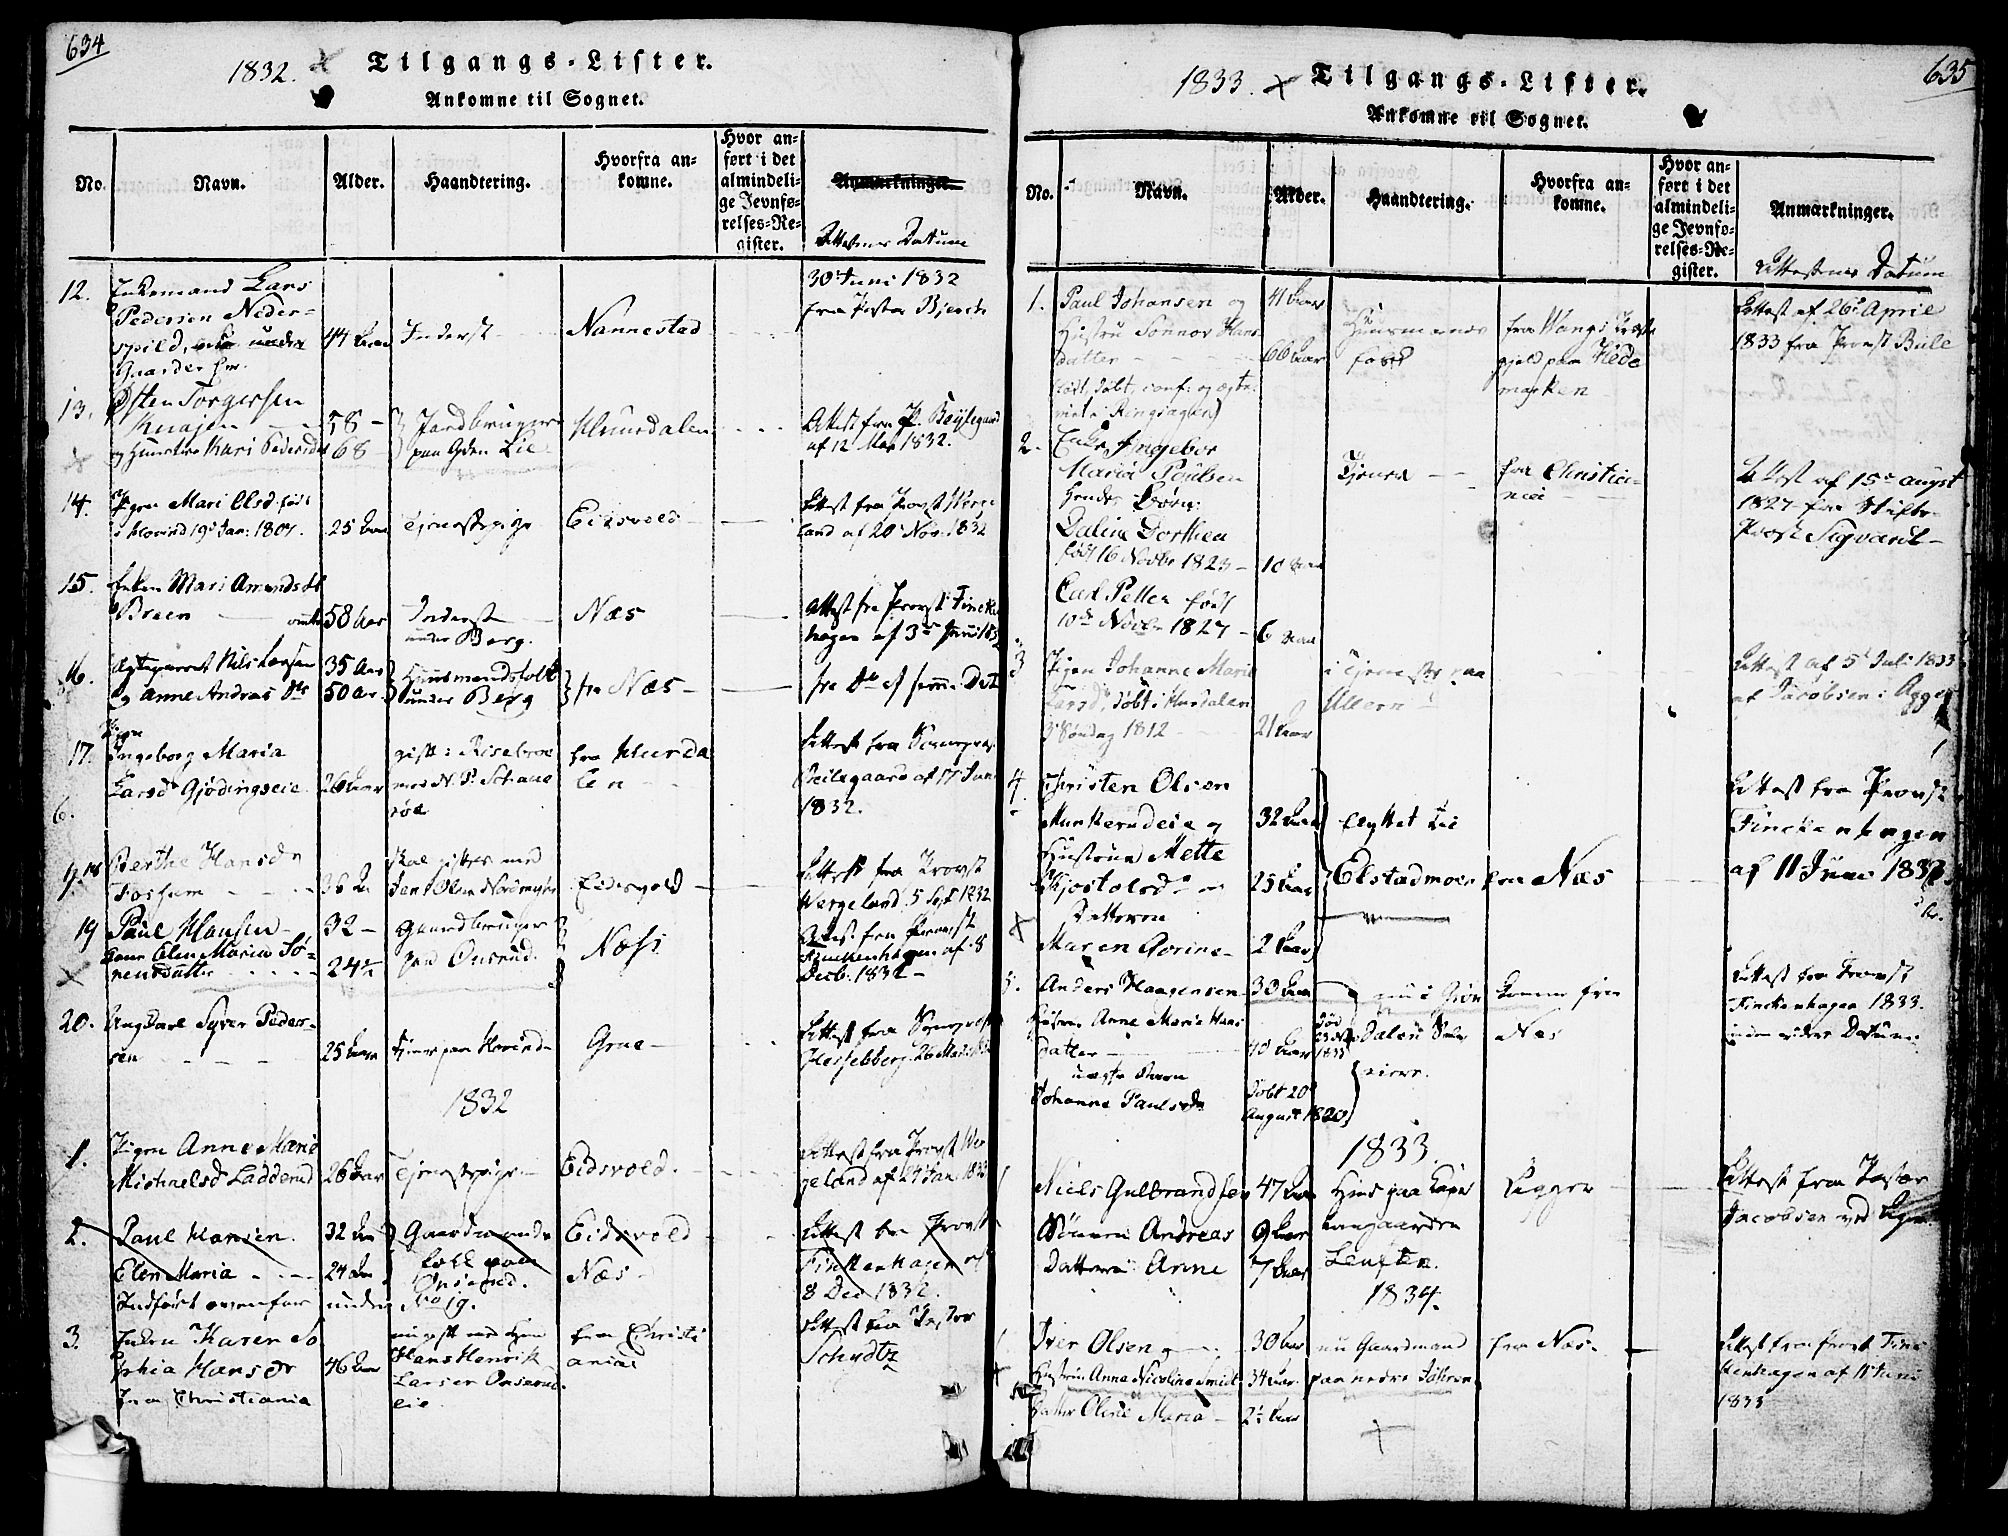 634
1832. Tilgangs-Lister.
Ankomne til Sognet.
No.
Navn.
Alder.
Haandtering.
Hvorfra an-
komne.
Hvor an-
ført i det
almindeli-
ge Jevnfø-
relses-Re-
gister.
Anmærkninger.
Attestens Datum
12.
Enkemand Lars
Pedersen Neder-
spild, under
44 Aar
Inderst
Nannestad
30 Juni 1832
fra Pastor Bjerch
13.
Østen Torgersen
58 -
og Hustru Kari Pedersd
68
Jordbruger
paa Gden Lie
Hurdalen
Attest fra P.
af 12 Mai 1832.
14.
Pigen Mari Olsd. født
i Hovind 19 Jan: 1807.
25 Aar
Tjenestepige
Eidsvold
Attest fra Provst Werge
land af 20 Nov. 1832
15.
Enken Mari Amunds dt
Breen
58 Aar
Inderst
under Berg.
Næs
Attest fra Provst Fincken
hagen af 3
16.
Ægteparret Nils Larsen
og Anne Andreas Dtr
35 Aar
50 Aar
Huusmandsfolk
under Berg
fra Næs
fra Do af samme Dato
17.
Pigen
Ingeborg Maria
Larsd Gjødingseie
26 Aar
gift i Risebroe
fra Hurda
len
Attest fra Sognepræst
af 17 Juni
1832.
18
Berthe Hansdr
36 A.
skal giftes med
Jens Olsen
Eidsvold
Attest fra Provst
Wergeland 5 Sept 1832
19
Paul Hansen
Kone Elen Maria Sø-
rensdatter
32 -
24½
Gaardbruger
paa Onsrud.
Næss
Attest fra Provst
Finckenhagen af 8
Decb. 1832 -
20.
Ungkarl Syver Peder-
sen
25 Aar
tjener paa Hovind
Grue
Attest fra Sognepræst
Hesselberg
1832
1.
Pigen Anne Marie
Michaelsd Ladderud
26 Aar
Tjenestepige
Eidsvold.
Attest fra Provst Wer
geland af 24 Jan. 1833
2.
Paul Hansen.
Elen Maria
Indført ovenfor
32 Aar
24 Aar
under
Gaardmands
folk paa
Onsrud.
No 19.
Eidsvold
Næs
Attest fra Provst
Finckenhagen af
8 Dec 1832.
3.
Enken Karen So
phia Hansdr
fra Christiania
46 Aar
Hans Henrik
Larsen Onsrud-
eie
fra Christi
ania
Attest fra Pastor
Schydtz
635
1833. Tilgangs-Lister.
Ankomne til Sognet.
No.
Navn.
Alder.
Haandtering.
Hvorfra an-
komne.
Hvor an-
ført i det
almindeli-
ge Jevnfø-
relses-Re-
gister.
Anmærkninger.
Attestens Datum
1.
Paul Johansen og
Hustru Sønnov Hans
datter
(født, døbt, conf. og ægte-
viet i Ringsager)
41 Aar
66 Aar
Huusmands
folk
fra Wangs Præste
gjeld paa Hede
marken
Attest af 26 April
1833 fra Provst Bull
2.
Enke Ingebor
Maria Poulsen
hendes Børn:
Dalina Dorthea
født 16 Novbr 1823 -
10 Aar
Carl Petter født
10de Novbr 1827 -
6 Aar
Tjener
fra Christia-
nia
Attest af 15 augst
1827 fra Stifts-
Provst Sigvardt
3
Pigen Johanne Marie
Larsd, døbt i Hurdalen
Søndag 1812
21 Aar
i Tjeneste paa
Ullern
Attest af 5 Juli 1833
af Jacobsen i Agger
4.
Christen Olsen
Munkerudeie og
Hustrue Mette
Kjostolsdr og
Datteren
Maren Gorine
32 Aar
25 Aar
2 Aar
flyttet til
Elstadmoen
fra Næs
Attest fra Provst
Finckenhagen
af 11 Juni 1833
5.
Anders Haagensen
Hustru Anne Marie Hans
datter
uægte Barn
Johanne Paulsdr
30 Aar
40 Aar
Døbt 20
August 1820
nu i Grøn
Dalen
eiere.
komne fra
Næs
Attest fra Provst
Finckenhagen 1833.
uden videre Datum.
1833.
Niels Gulbrandsen
Sønnen Andreas
Datteren Anne
47 Aar
9 Aar
7 Aar
Huus paa
Laugaarden
Agger
Attest fra Pastor
Jacobsen ved Agger
1834.
Iver Olsen og
Hustru Anne Nicoline Smidt
Datter Oline Maria
30 Aar
34 Aar.
2½ Aar
nu Gaardmand
paa nedre
fra Næs
Attest fra Provst Finc
kenhagen af 11 Juni
1833